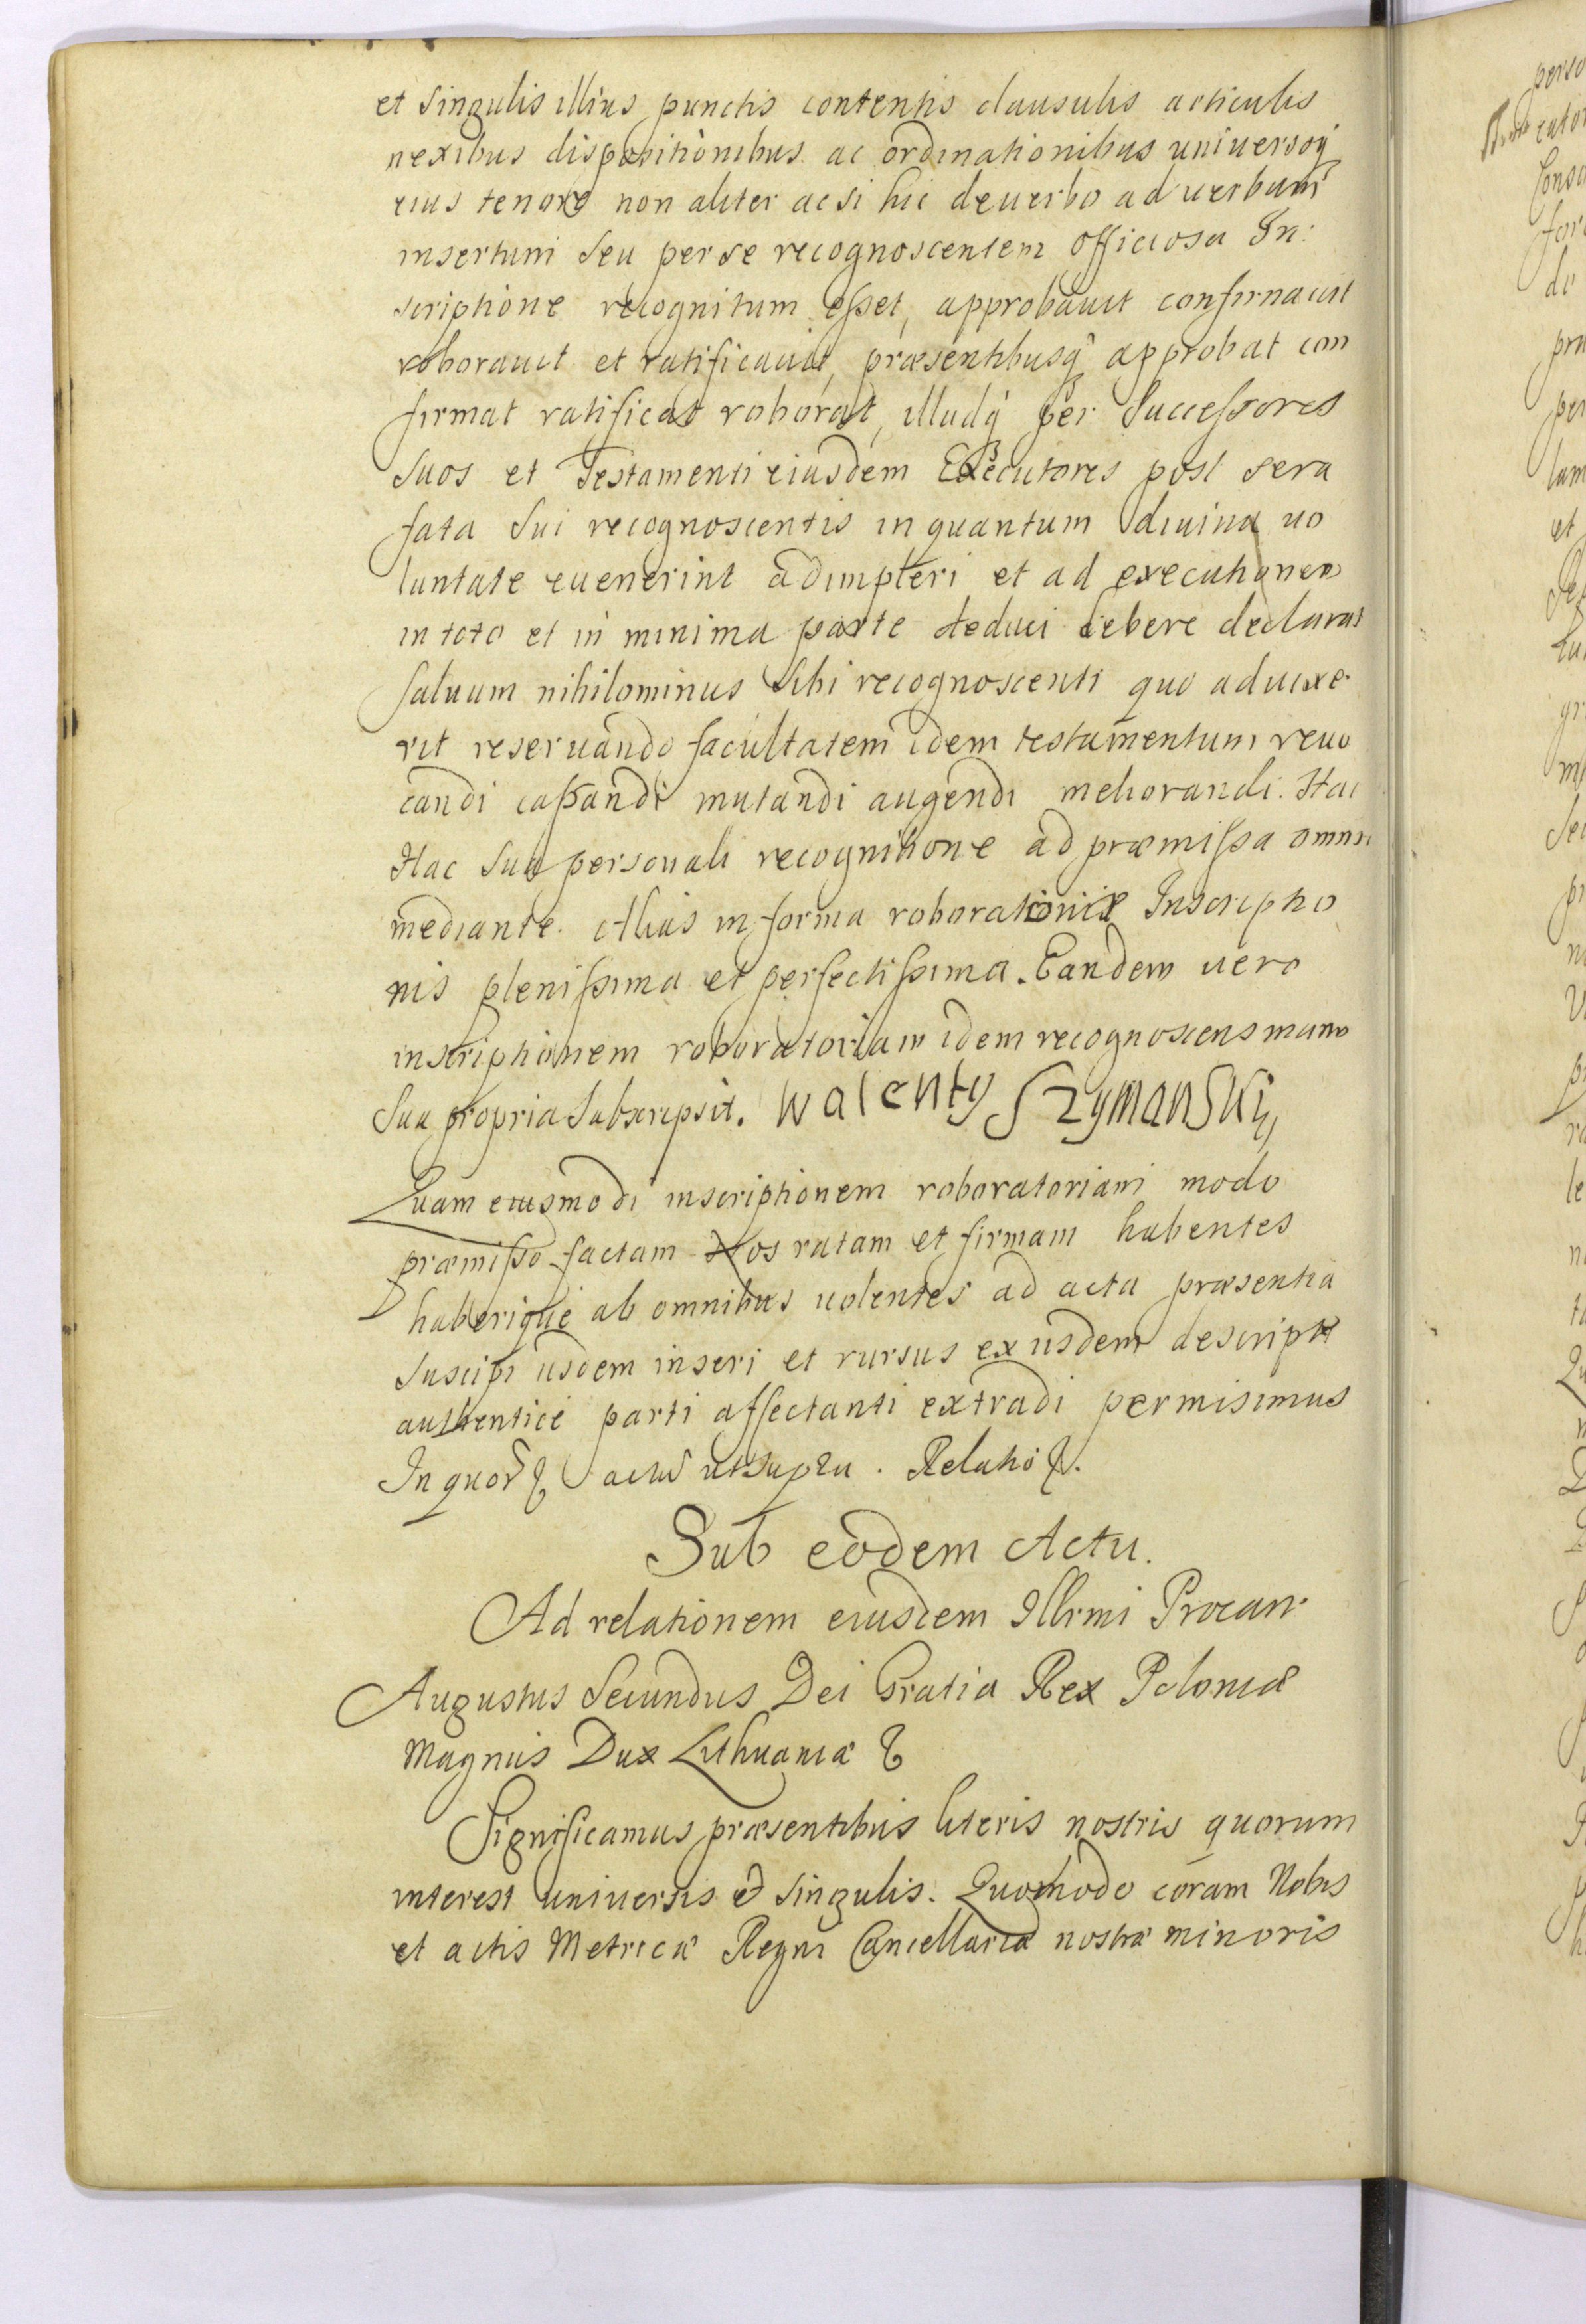 et singulis illius punctis contentis clausulis articulis
nexibus dispositionibus ac ordinationibus universoq́
eius tenore non aliter ac si hic de uerbo ad uerbum
insertum seu per se recognoscentem officiosa In:
scriptione recognitum esset, approbauit confirmauit
roborauit et ratificauit, præsentibusq́ approbat con
firmat ratificat roborat, illudq́ per Successores
suos et Testamenti eiusdem Executores post sera
fata sui recognoscentis in quantum diuina uo
luntate euenerint adimpleri et ad executionem
in toto et in minima parte deduci debere declarat
saluum nihilominus sibi recognoscenti quo aduixe
rit reseruando facultatem idem testamentum reuo
candi cassandi mutandi augendi meliorandi. Hac
Hac sua personali recognitione ad præmissa omnia
mediante. Alias in forma roborationis Inscriptio
nis plenissima et perfectissima. Eandem uero
inscriptionem roboratoriam idem recognoscens manu
sua propria subscripsit. Walenty Szymanski,
Quam eiusmodi inscriptionem roboratoriam modo
præmisso factam Nos ratam et firmam habentes
haberique ab omnibus uolentes ad acta præsentia
suscipi iisdem inseri et rursus ex iisdem descripte
authentice parti affectanti extradi permisimus
In quor̃ & actũ ut supra. Relatio &.
Sub eodem Actu.
Ad relationem eiusdem Illrmi Procan
Augustus Secundus Dei Gratia Rex Poloniæ
Magnus Dux Lithuaniæ &
Significamus præsentibus literis nostris quorum
interest uniuersis et singulis. Quomodo coram Nobis
et actis Metricæ Regni Cancellariæ nostræ minoris